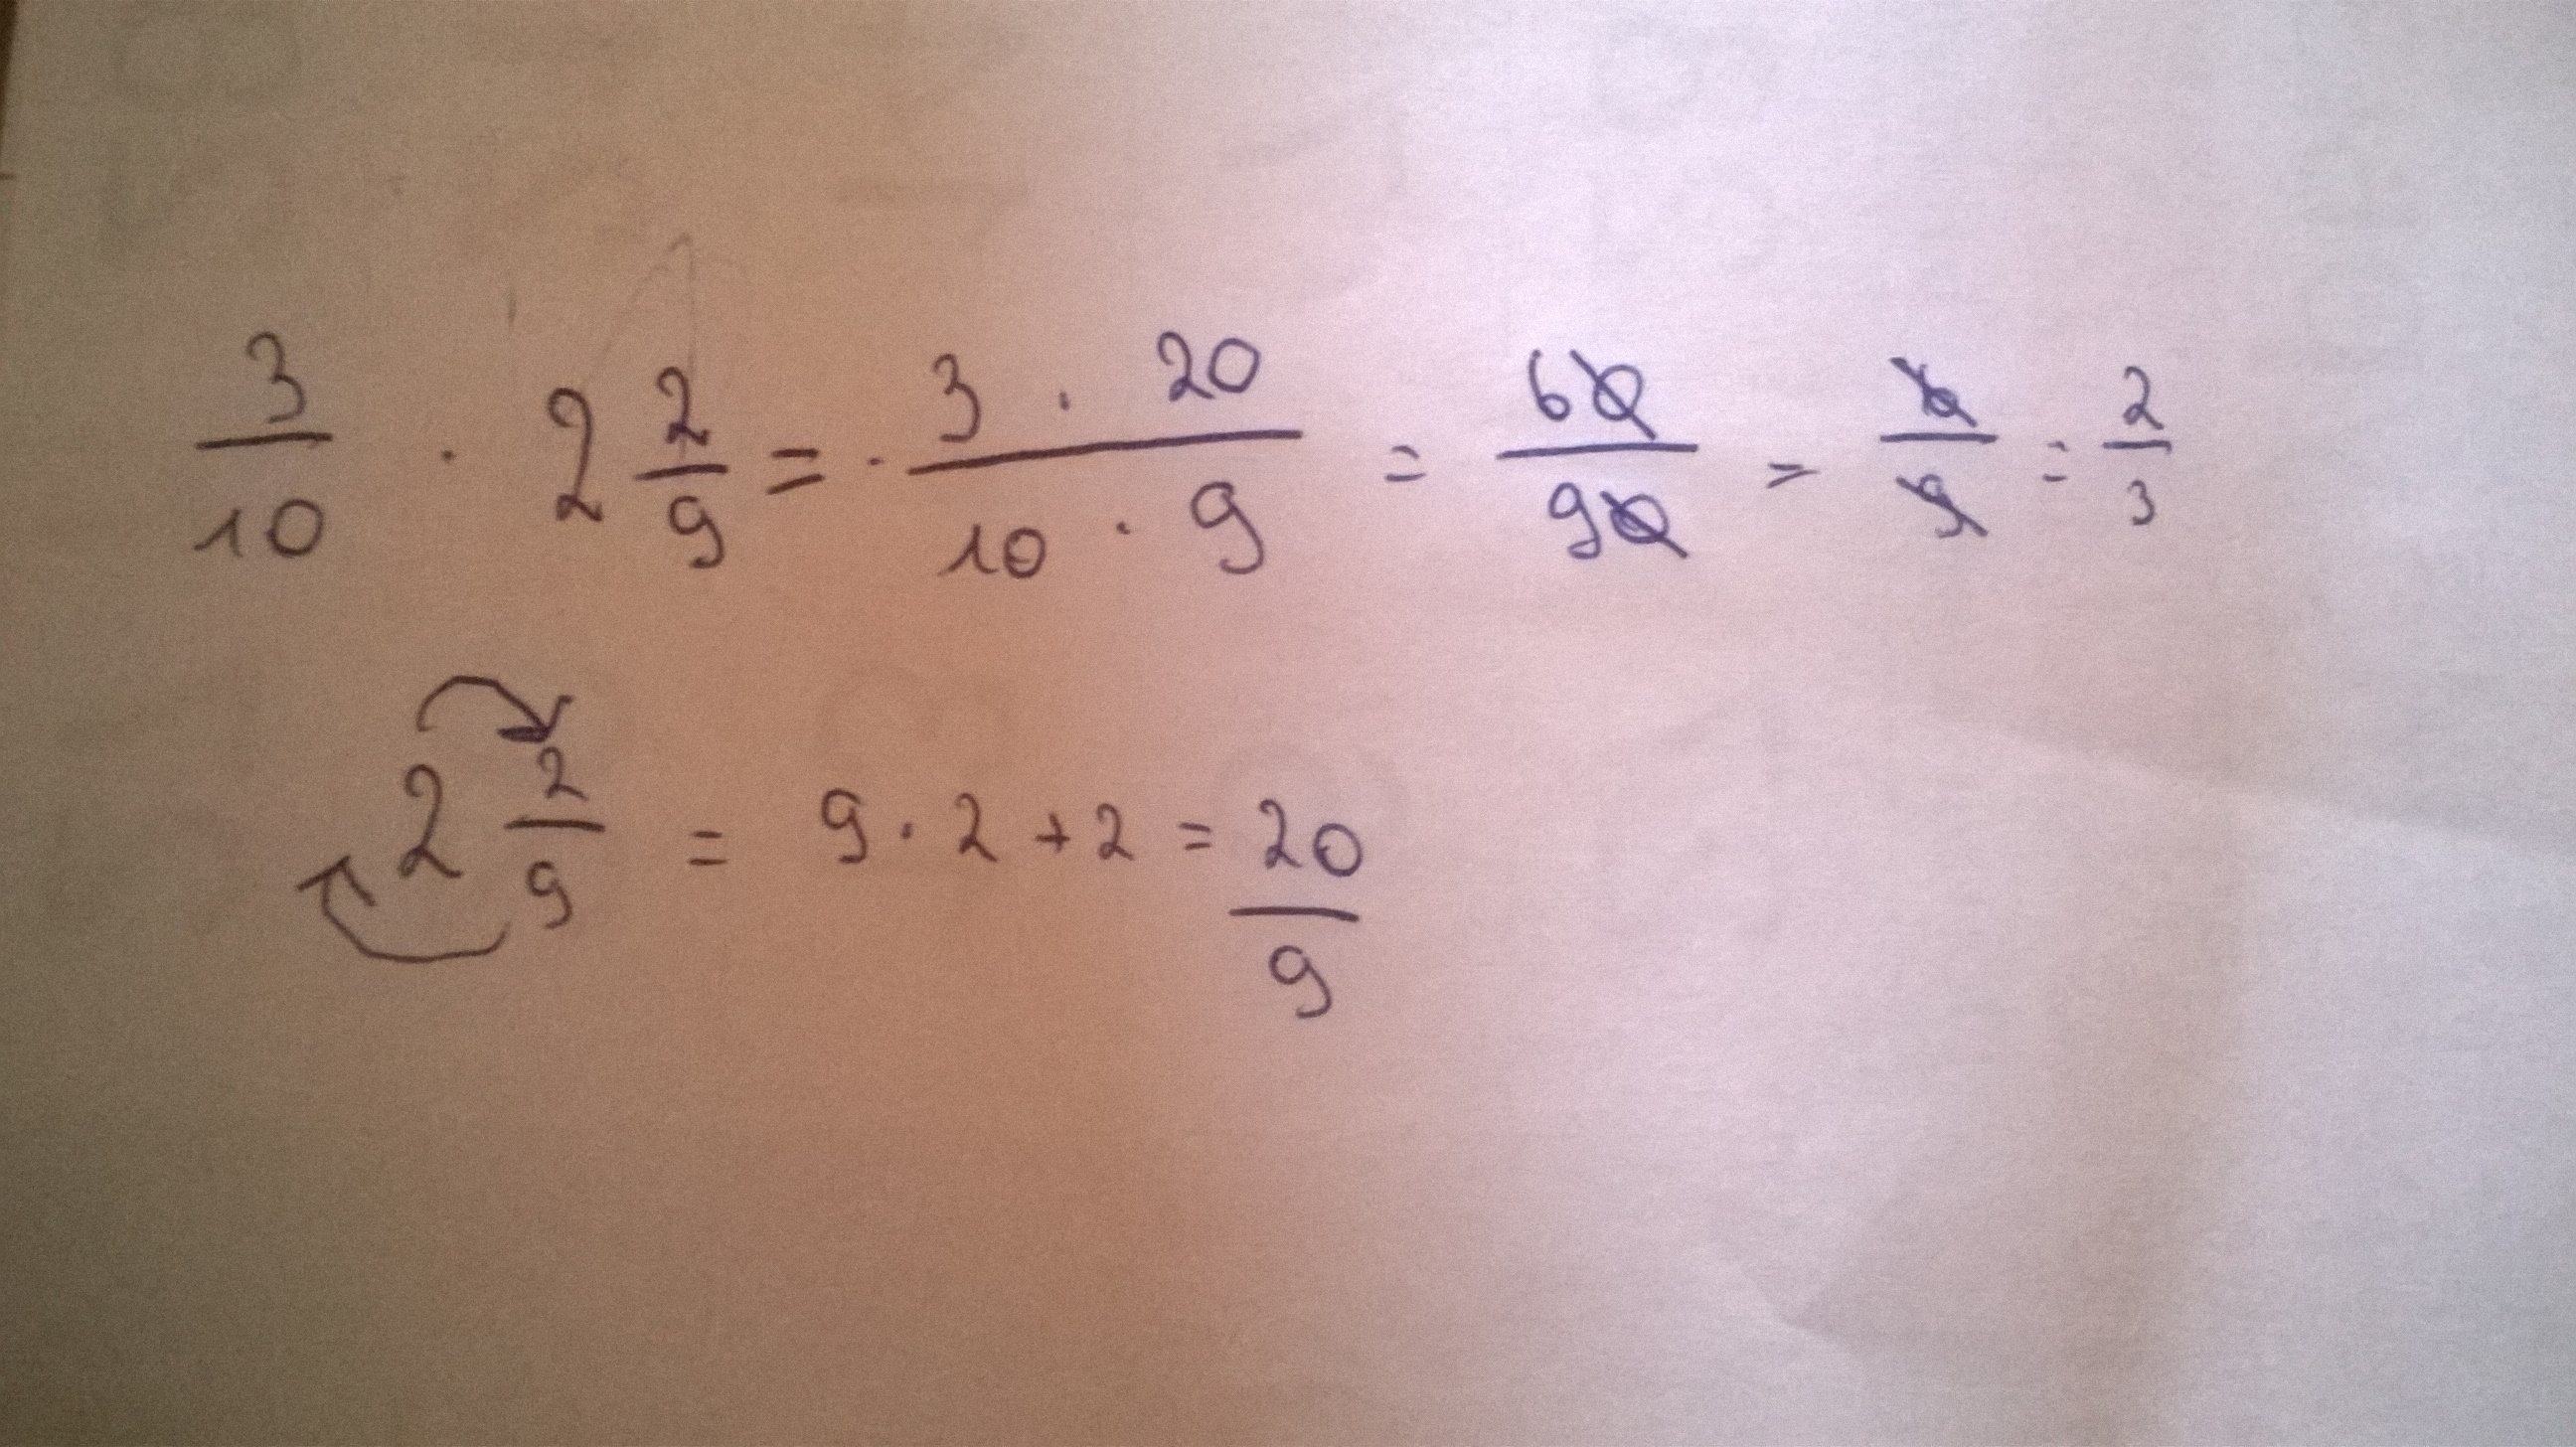 3/10 · 2 2/9 = · 3 · 20 / 10 · 9 = 60/90 = 6/9 = 2/3
2 2/9 = 9 · 2 + 2 = 20/9